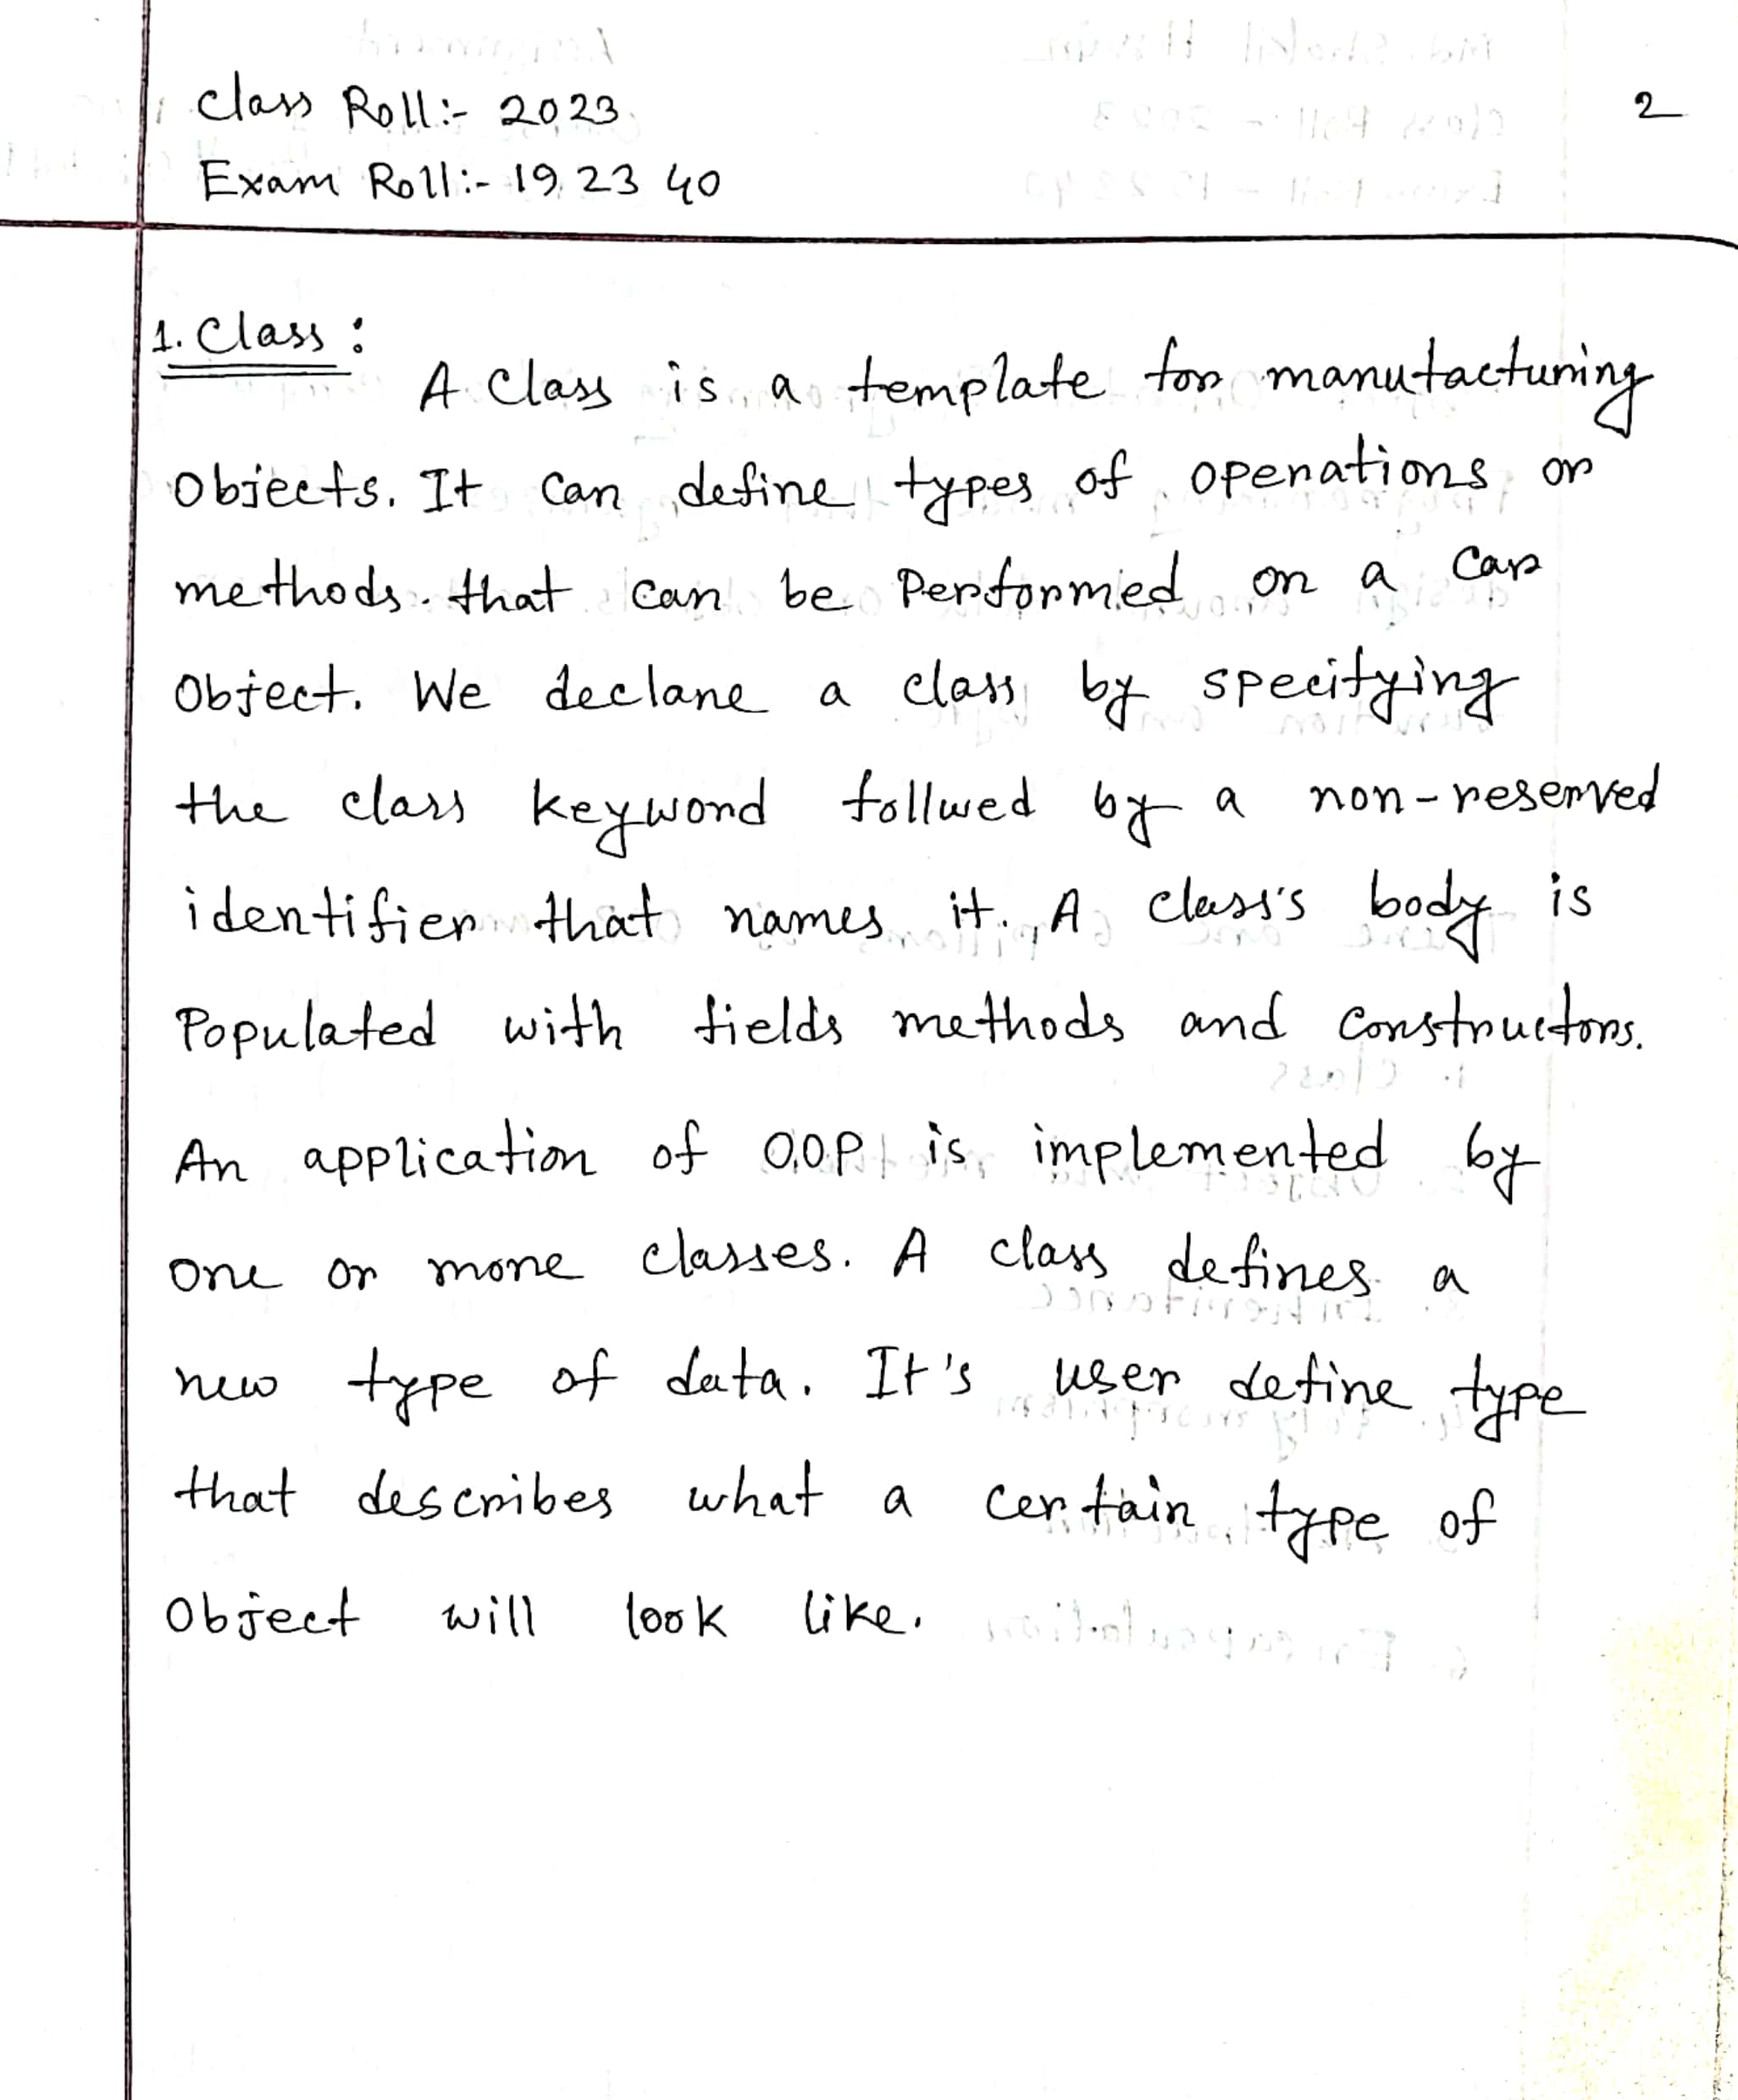 Class Roll:- 2023
2
Exam Roll:- 19 23 40
1. Class :
A Class is a template for manufacturing
Objects. It can define types of operations or
methods. that can be Performed on a Car
Object. We declare a class by specifying
the class keyword follwed by a non-reserved
identifier that names it. A class's body is
Populated with fields methods and constructors.
An application of O.O.P is implemented by
one or more classes. A class defines a
new type of data. It's user define type
that describes what a certain type of
Object will look like.